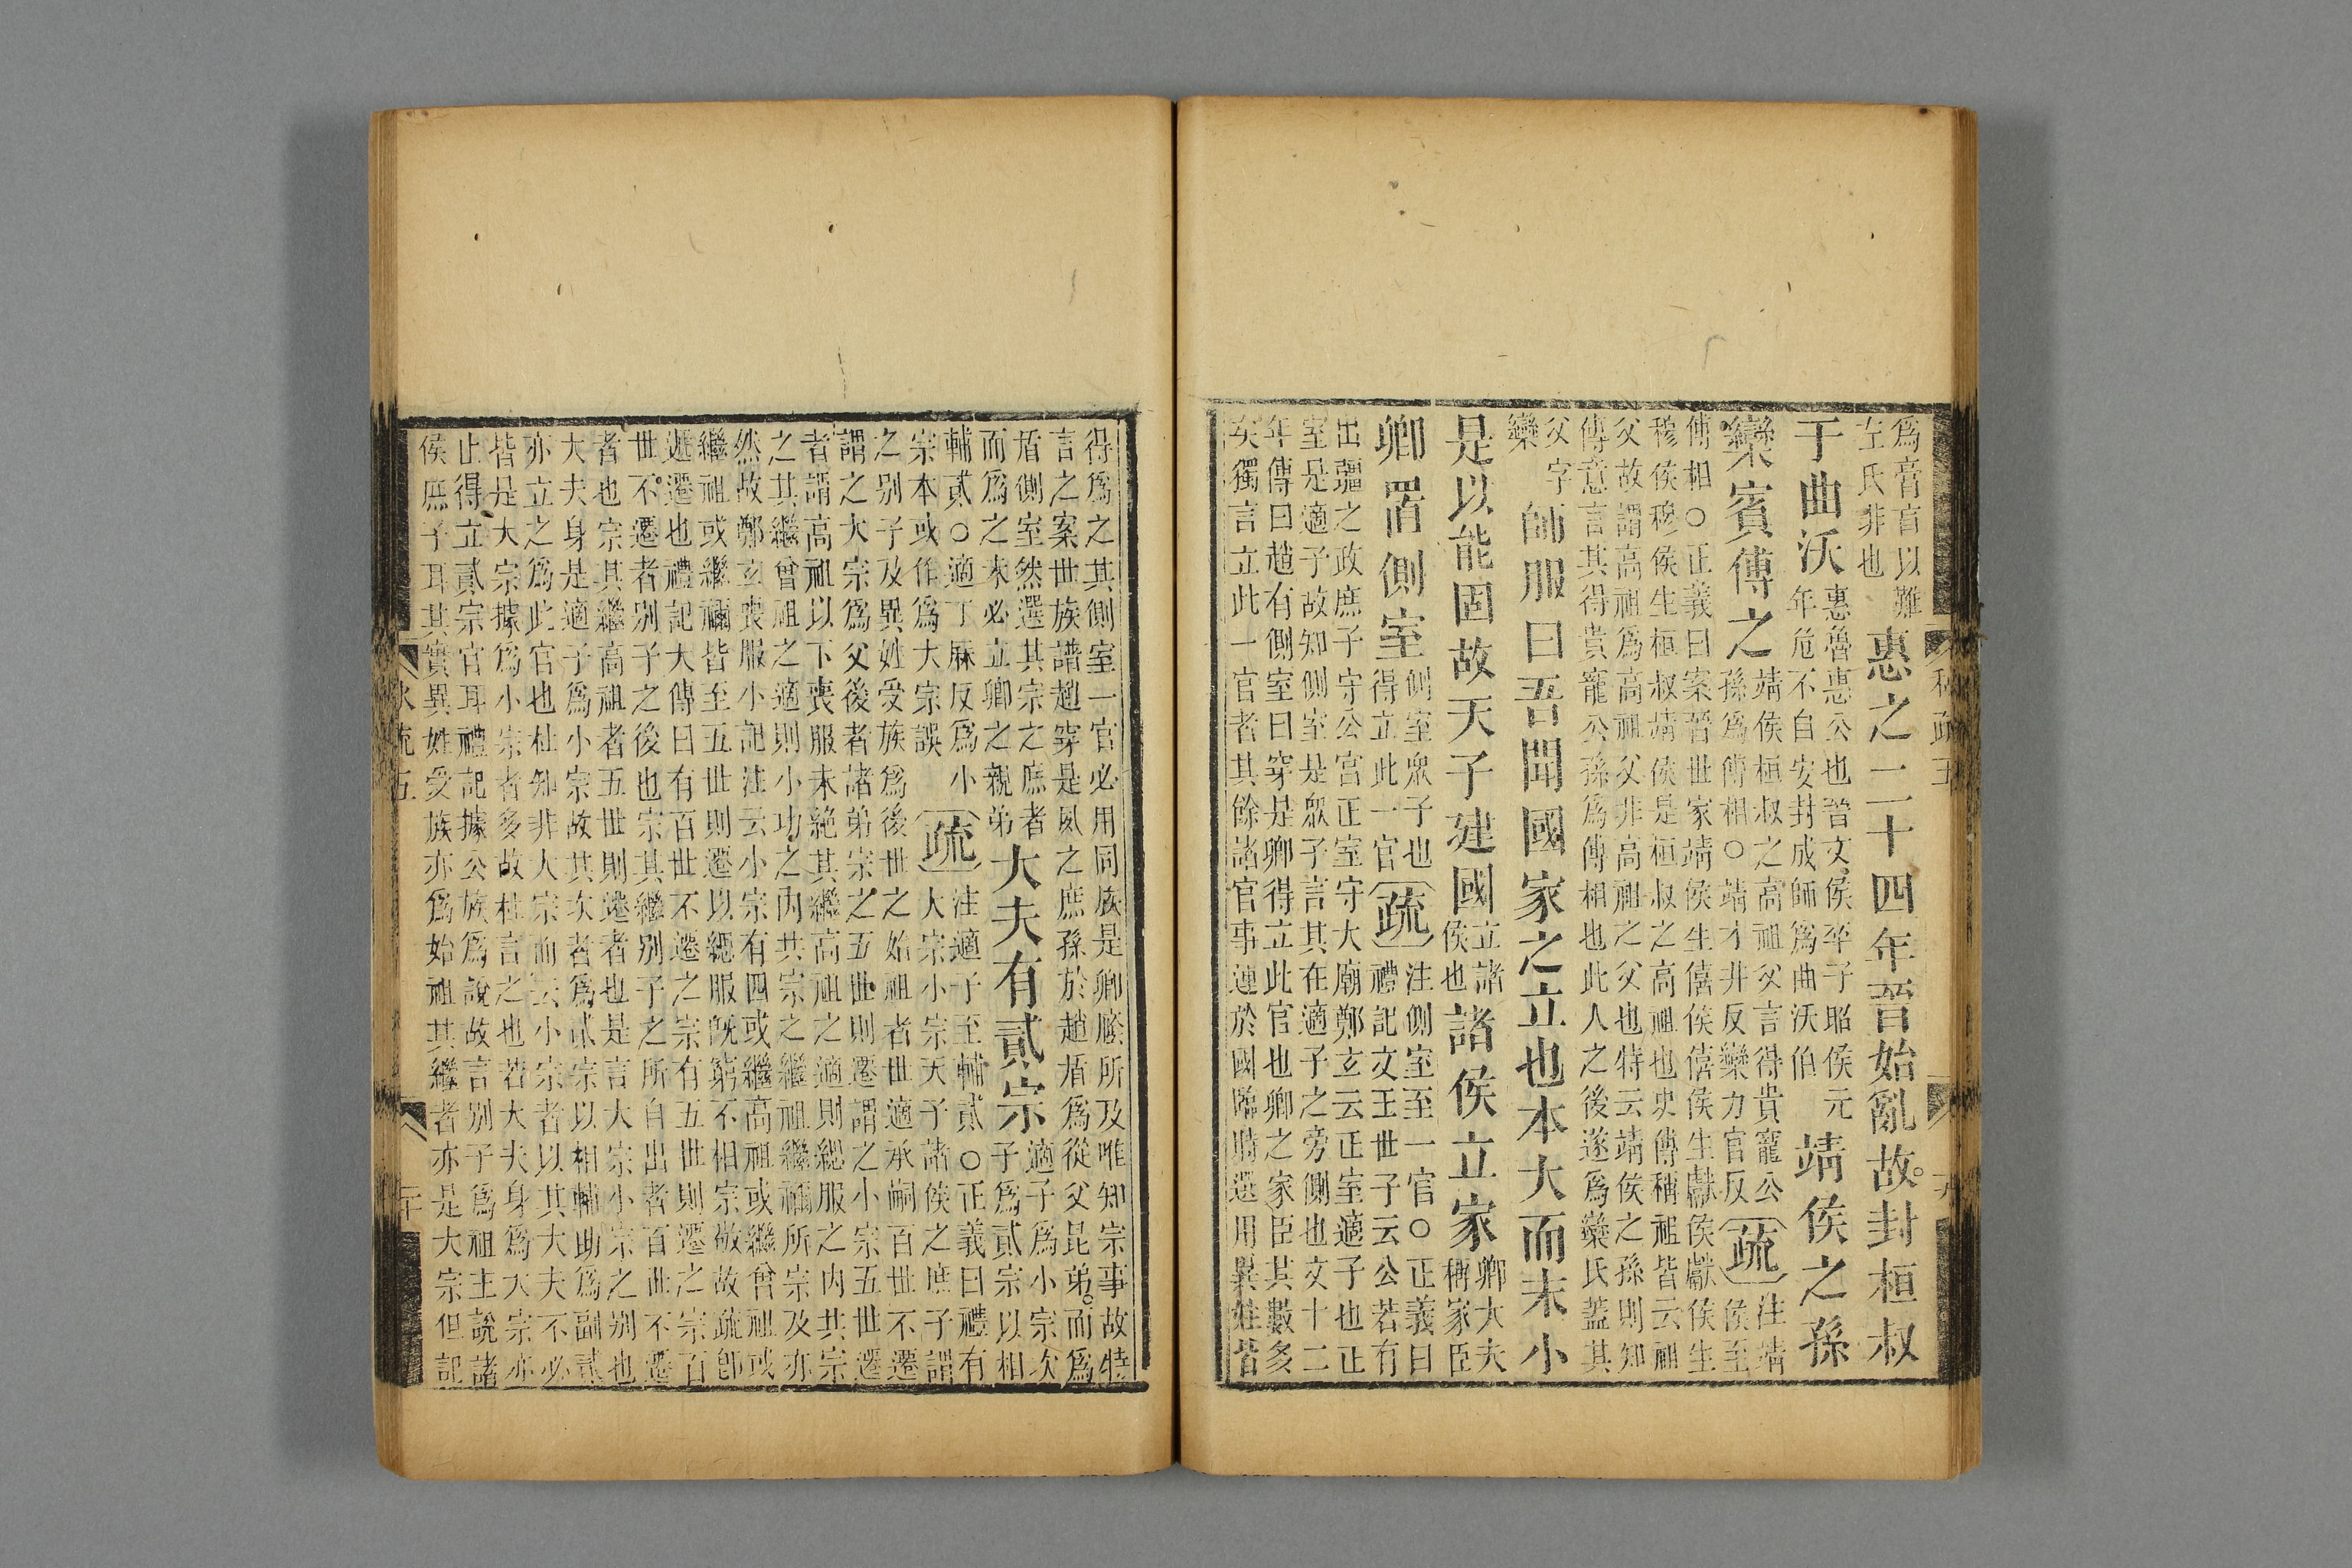 爲膏肓以難
左氏非也
惠之二十四年晉始亂故封桓叔
于曲沃
惠魯惠公也晉文侯卒子昭侯元
年危不自安封成師爲曲沃伯
靖侯之孫
欒賓傅之
靖侯桓叔之高祖父言得貴寵公
孫爲傅相○靖才井反欒力官反
疏
注靖
侯至
傅相○正義曰案晉世家靖侯生僖侯僖侯生獻侯獻侯生
穆侯穆侯生桓叔靖侯是桓叔之高祖也史傳稱祖皆云祖
父故謂高祖爲高祖父非高祖之父也特云靖侯之孫則知
傳意言其得貴寵公孫爲傅相也此人之後遂爲欒氏蓋其
父字
欒
師服曰吾聞國家之立也本大而末小
是以能固故天子建國
立諸
侯也
諸侯立家
卿大夫
稱家臣
卿置側室
側室衆子也
得立此一官
疏
注側室至一官○正義曰
禮記文王世子云公若有
出疆之政庶子守公宮正室守大廟鄭玄云正室適子也正
室是適子故知側室是衆子言其在適子之旁側也文十二
年傳曰趙有側室曰穿是卿得立此官也卿之家臣其數多
矣獨言立此一官者其餘諸官事連於國臨時選用異姓皆
得爲之其側室一官必用同族是卿廕所及唯知宗事故特
言之案世族譜趙穿是夙之庶孫於趙盾爲從父昆弟而爲
盾側室然選其宗之庶者
而爲之未必立卿之親弟
大夫有貳宗
適子爲小宗次
子爲貳宗以相
輔貳○適丁麻反爲小
宗本或作爲大宗誤
疏
注適子至輔貳○正義曰禮有
大宗小宗天子諸侯之庶子謂
之别子及異姓受族爲後世之始祖者世適承嗣百世不遷
謂之大宗爲父後者諸弟宗之五世則遷謂之小宗五世遷
者謂高祖以下喪服未絶其繼高祖之適則緦服之内共宗
之其繼曾祖之適則小功之内共宗之繼祖繼禰所宗及亦
然故鄭玄喪服小記注云小宗有四或繼高祖或繼曾祖或
繼祖或繼禰皆至五世則遷以緦服旣窮不相宗敬故疏卽
遞遷也禮記大傳曰有百世不遷之宗有五世則遷之宗百
世不遷者别子之後也宗其繼别子之所自出者百世不遷
者也宗其繼高祖者五世則遷者也是言大宗小宗之别也
大夫身是適子爲小宗故其次者爲貳宗以相輔助爲副貳
亦立之爲此官也杜知非大宗而云小宗者以其大夫不必
皆是大宗據爲小宗者多故杜言之也若大夫身爲大宗亦
止得立貳宗官耳禮記據公族爲說故言别子爲祖主說諸
侯庶子耳其實異姓受族亦爲始祖其繼者亦是大宗但記